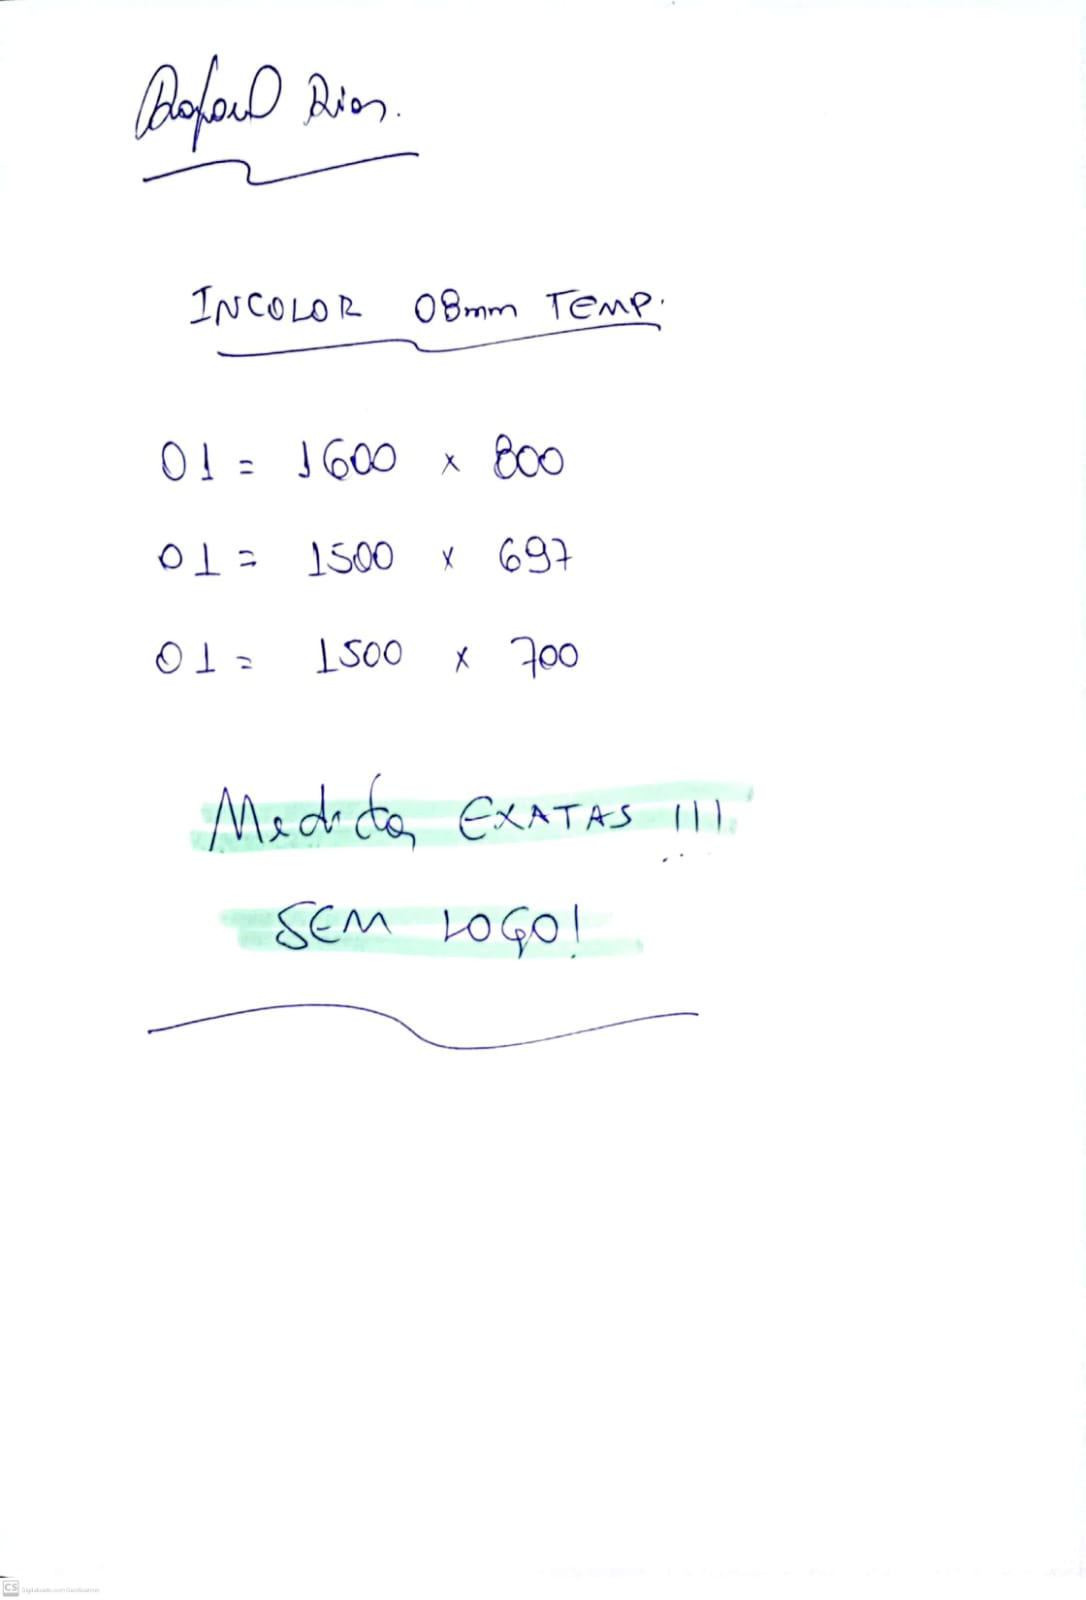 Rafael Dias.
INCOLOR 08mm TEMP.
01 = 1600 x 800
01 = 1500 x 697
01 = 1500 x 700
Medidas EXATAS !!!
SEM LOGO!
CS Digitalizado com CamScanner